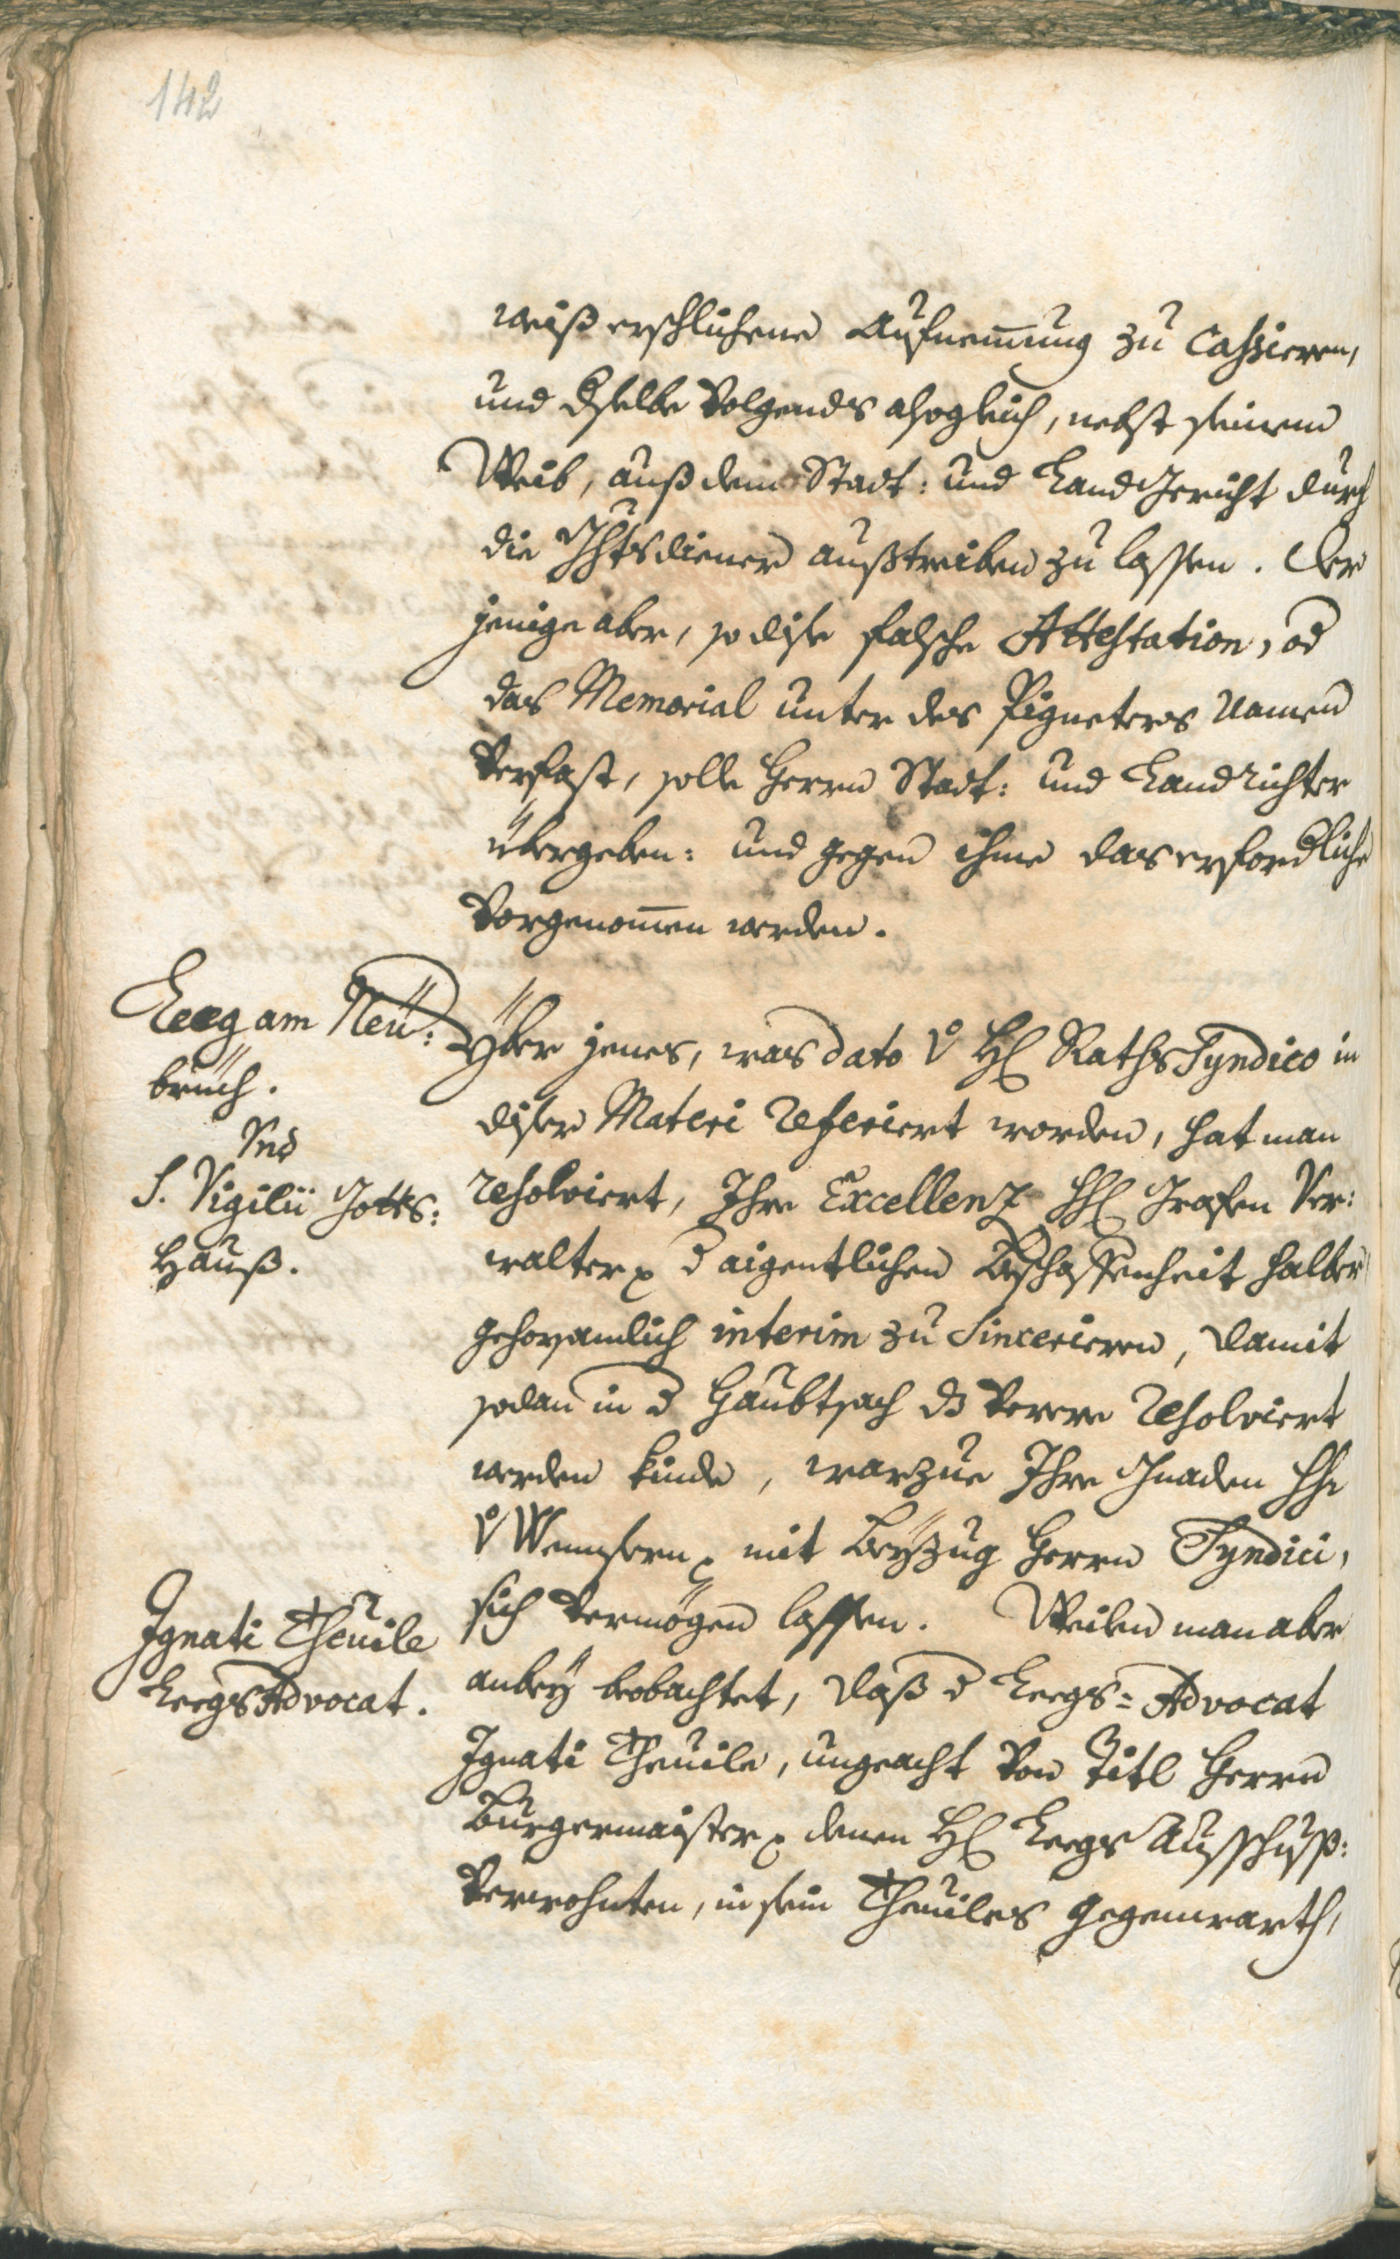 142
weiß erschlichene Aufnemung zu Cassieren,
und dselbe Volgends alsogleich, nebst seinem
Weib, auß dem Stadt: und Landgericht durch
die Ghtsdiener außtreiben zu lassen. Der
jenige aber, so dise falsche Attestation, od
das Memorial unter des Pigneters Namen
Verfast, solle Herrn Stadt: und Landrichter
übergeben: und gegen ihme das erfordliche
Vorgenomen werden.
Leeg am Neu:
bruch.
Vnd
S. Vigilii Gotts:
Hauß.
Yber jenes, was dato v H Raths Syndico in
diser Materi Referiert worden, hat man
Resolviert, Ihre Excellenz HH Grafen Ver:
walter d aigentlichen Beschaffenheit halber
gehorsamlich interim zu Sincerieren, damit
sodan in d Haubtsach ds Verere Resolviert
werden kinde, warzue Ihre Gnaden HH
v Wensern mit Beyzug Herrn Syndici,
sich Vermögen lassen. Weilen man aber
Ignati Theuile
Leegs Advocat.
anbey beobachtet, daß d Leegs=Advocat
Ignati Theuile, ungeacht Von Titl Herrn
Burgermaister denen H Leegs Ausschuss:
Verwohnten, in sein Theuiles gegenwarth,